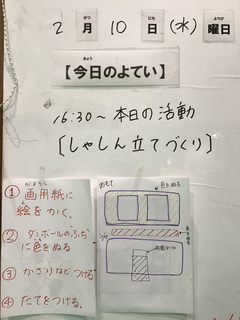 2月10日(水)曜日
【今日のよてい】
16:30～ 本日の活動
〔しゃしん立てづくり〕
① 画用紙に
絵をかく。
② ダンボールのふちに色をぬる
③ かざりなどつける
④ たてをつける。
おもて
色をぬる
うら